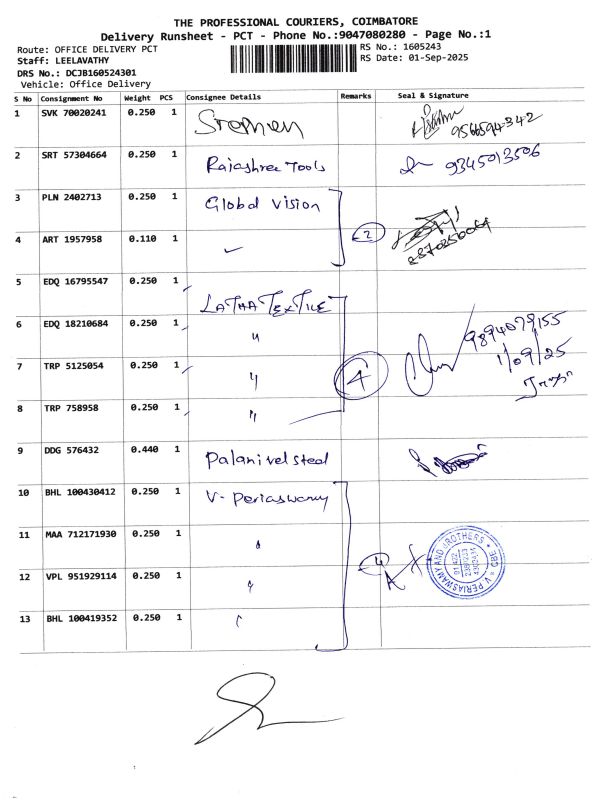 THE PROFESSIONAL COURIERS, COIMBATORE
Delivery Runsheet - PCT - Phone No.:9047080280 - Page No.:1
Route: OFFICE DELIVERY PCT
RS No.: 1605243
Staff: LEELAVATHY
RS Date: 01-Sep-2025
DRS No.: DCJB160524301
Vehicle: Office Delivery
S No Consignment No Weight PCS Consignee Details Remarks Seal & Signature
1 SVK 70020241 0.250 1 Stephen 9566594342
2 SRT 57304664 0.250 1 Rajashree Tools 9345013506
3 PLN 2402713 0.250 1 Global Vision
4 ART 1957958 0.110 1 2
5 EDQ 16795547 0.250 1 LATHA TEXTILE
6 EDQ 18210684 0.250 1 〃 9894079155
7 TRP 5125054 0.250 1 〃 4 1/09/25
8 TRP 758958 0.250 1 〃
9 DDG 576432 0.440 1 Palanivel steel
10 BHL 100430412 0.250 1 V. Periaswamy
11 MAA 712171930 0.250 1 〃
12 VPL 951929114 0.250 1 〃 4
13 BHL 100419352 0.250 1
V PERIASWAMY AND BROTHERS * CBE *